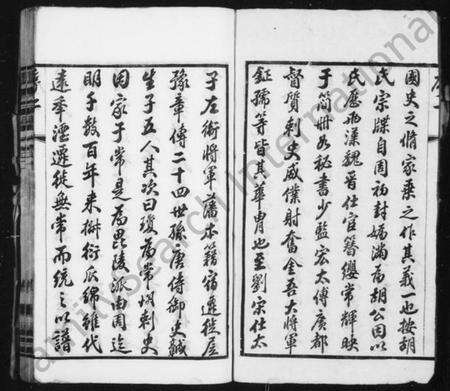 國史之脩家乘之作其義一也按胡
氏宗牒自周初封媯滿為胡公因以
氏歷兩漢魏晉仕宦簪纓常輝映
于簡冊如秘書少監宏太傅廣都
督質刺史威僕射奮金吾大將軍
鉦孺等皆其華冑也至劉宋仕太
子左衛將軍藩本籍宿遷徙居
豫章傳二十四世孫唐侍御史諴
生子五人其次曰瓊為常州刺史
因家于常是為毘陵派由周迄
明子數百年來椒衍瓜綿雖代
遠年湮遷徙無常而統之以譜
FamilySearch International